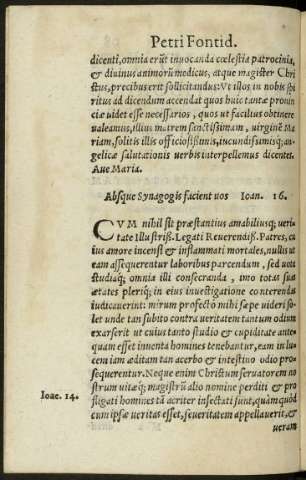 Petri Fontid.
dicenti, omnia erũt inuocanda cœlestia patrocinia,
& diuinus animorũ modicus, atque magister Chri
stus, precibus erit sollicitandus: Vt illos in nobis spi
ritus ad dicendum accendat quos huic tantæ prouin
ciæ uidet esse necessarios, quos ut facilius obtinere
ualeamus, illius matrem sanctissimam, uirginẽ Ma
riam, solitis illis officiosissimis, iucundissimisq; an-
gelicæ salutationis uerbis interpellemus dicentes.
Aue Maria.
Absque Synagogis facient uos Ioan. 16.
CVM nihil sit præstantius amabiliusq; ueri-
tate Illustriss. Legati Reuerendiss. Patres, cu
ius amore incensi & inflammati mortales, nullis ut
eam assequerentur laboribus parcendum, sed uota
studiaq; omnia illi consecranda, imo totas suæ
ætates pleriq; in eius inuestigatione conterendas
iudicauerint: mirum profectò nihi sæpe uideri so-
let unde tan subito contra ueritatem tantum odium
exarserit ut cuius tanto studio & cupiditate ante-
quam esset inuenta homines tenebantur, eam in lu-
cem iam æditam tan acerbo & intestino odio pro-
sequerentur. Neque enim Christum seruatorem no
strum uitæq; magistrũ alio nomine perditi & pro
fligati homines tã acriter insectati sunt, quàm quòd
Ioae. 14. cum ipsæ ueritas esset, se ueritatem appellauerit, &
ueram